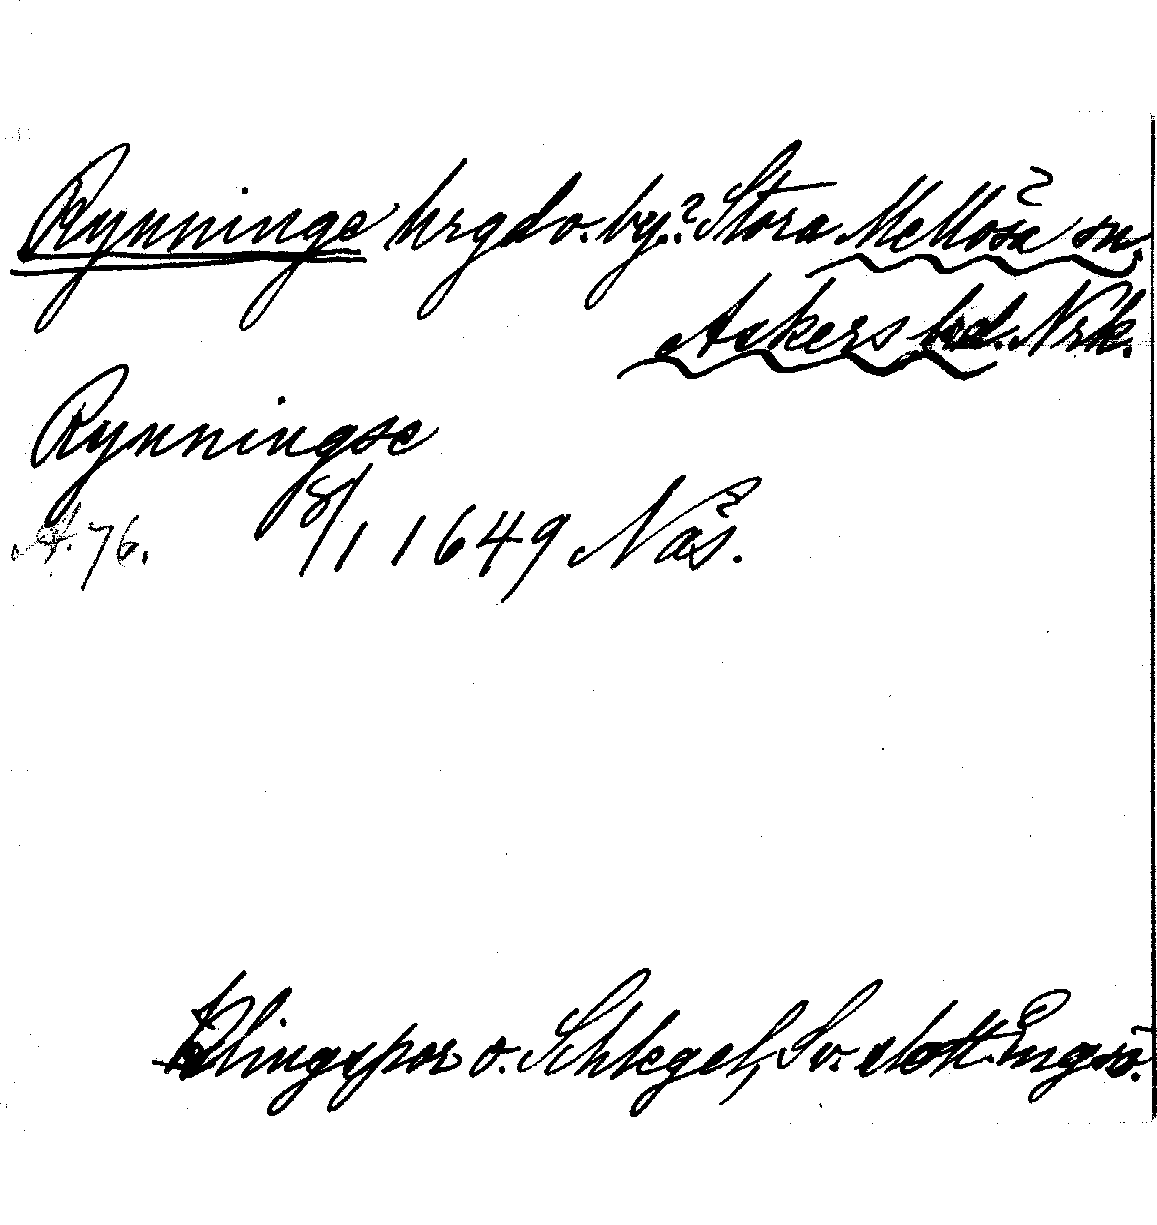 Rynninge hrgd o. by.? Stora Mellösa sn.
Askers hd. Nrk.
Rynningse
A. 76. 8/1 1649 Näs.
Klingspor o. Schlegel, Sv. slott Engsö.